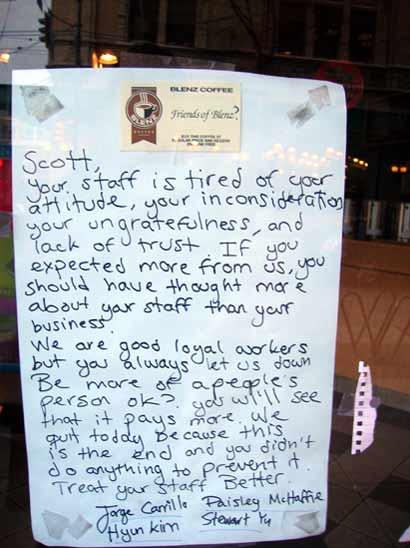 BLENZ COFFEE
Friends of Blenz?
BLENZ
COFFEE
Scott,
your staff is tired of your
attitude, your inconsideration
your ungratefulness, and
lack of trust. If you
expected more from us, you
should have thought more
about your staff than your
business.
We are good loyal workers
but you always let us down
Be more of a people's
person ok? you will see
that it pays more. We
quit today because this
is the end and you didn't
do anything to prevent it.
Treat your staff Better.
Jorge Carrillo Paisley McHaffie
Hyun Kim Stewart Yu